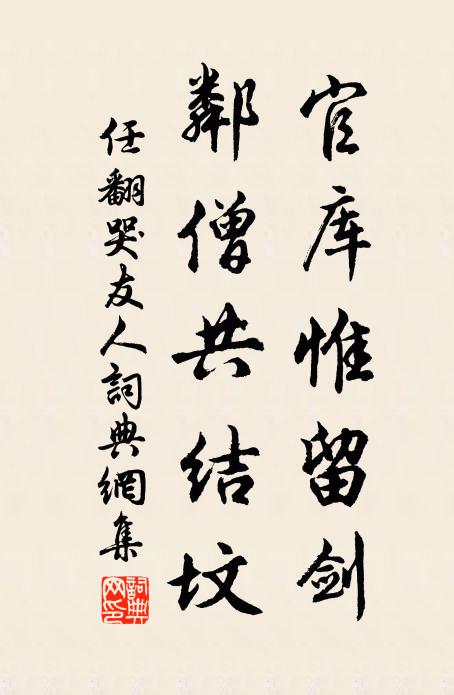 官库惟留剑
鄰僧共结坟
任翻哭友人詞典網集
詞典网印